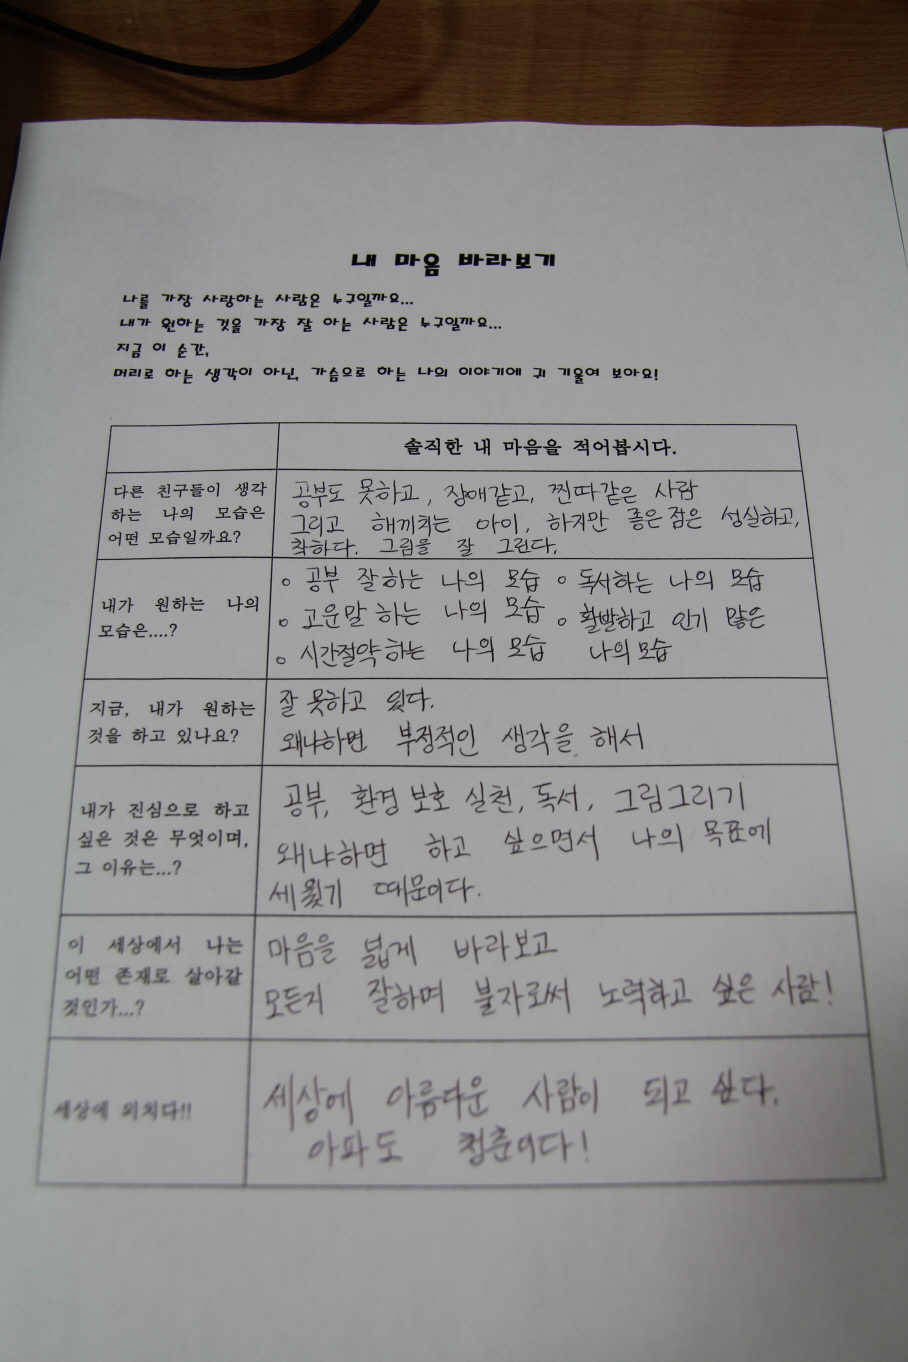 내 마음 바라보기
나를 가장 사랑하는 사람은 누구일까요...
내가 원하는 것을 가장 잘 아는 사람은 누구일까요...
지금 이 순간,
머리로 하는 생각이 아닌, 가슴으로 하는 나의 이야기에 귀 기울여 보아요!
솔직한 내 마음을 적어봅시다.
다른 친구들이 생각
하는 나의 모습은
어떤 모습일까요?
공부도 못하고, 장애같고, 찐따같은 사람
그리고 해끼치는 아이, 하지만 좋은 점은 성실하고,
착하다. 그림을 잘 그린다.
내가 원하는 나의
모습은....?
○ 공부 잘하는 나의 모습 ○ 독서하는 나의 모습
○ 고운말 하는 나의 모습 ○ 활발하고 인기 많은
○ 시간절약하는 나의 모습 나의 모습
지금, 내가 원하는
것을 하고 있나요?
잘 못하고 있다.
왜냐하면 부정적인 생각을 해서
내가 진심으로 하고
싶은 것은 무엇이며,
그 이유는...?
공부, 환경 보호 실천, 독서, 그림그리기
왜냐하면 하고 싶으면서 나의 목표에
때문이다.
이 세상에서 나는
어떤 존재로 살아갈
것인가...?
마음을 넓게 바라보고
모든지 잘하며 불자로써 노력하고 싶은 사람!
세상에 외치다!!
세상에 아름다운 사람이 되고 싶다.
아파도 청춘이다!